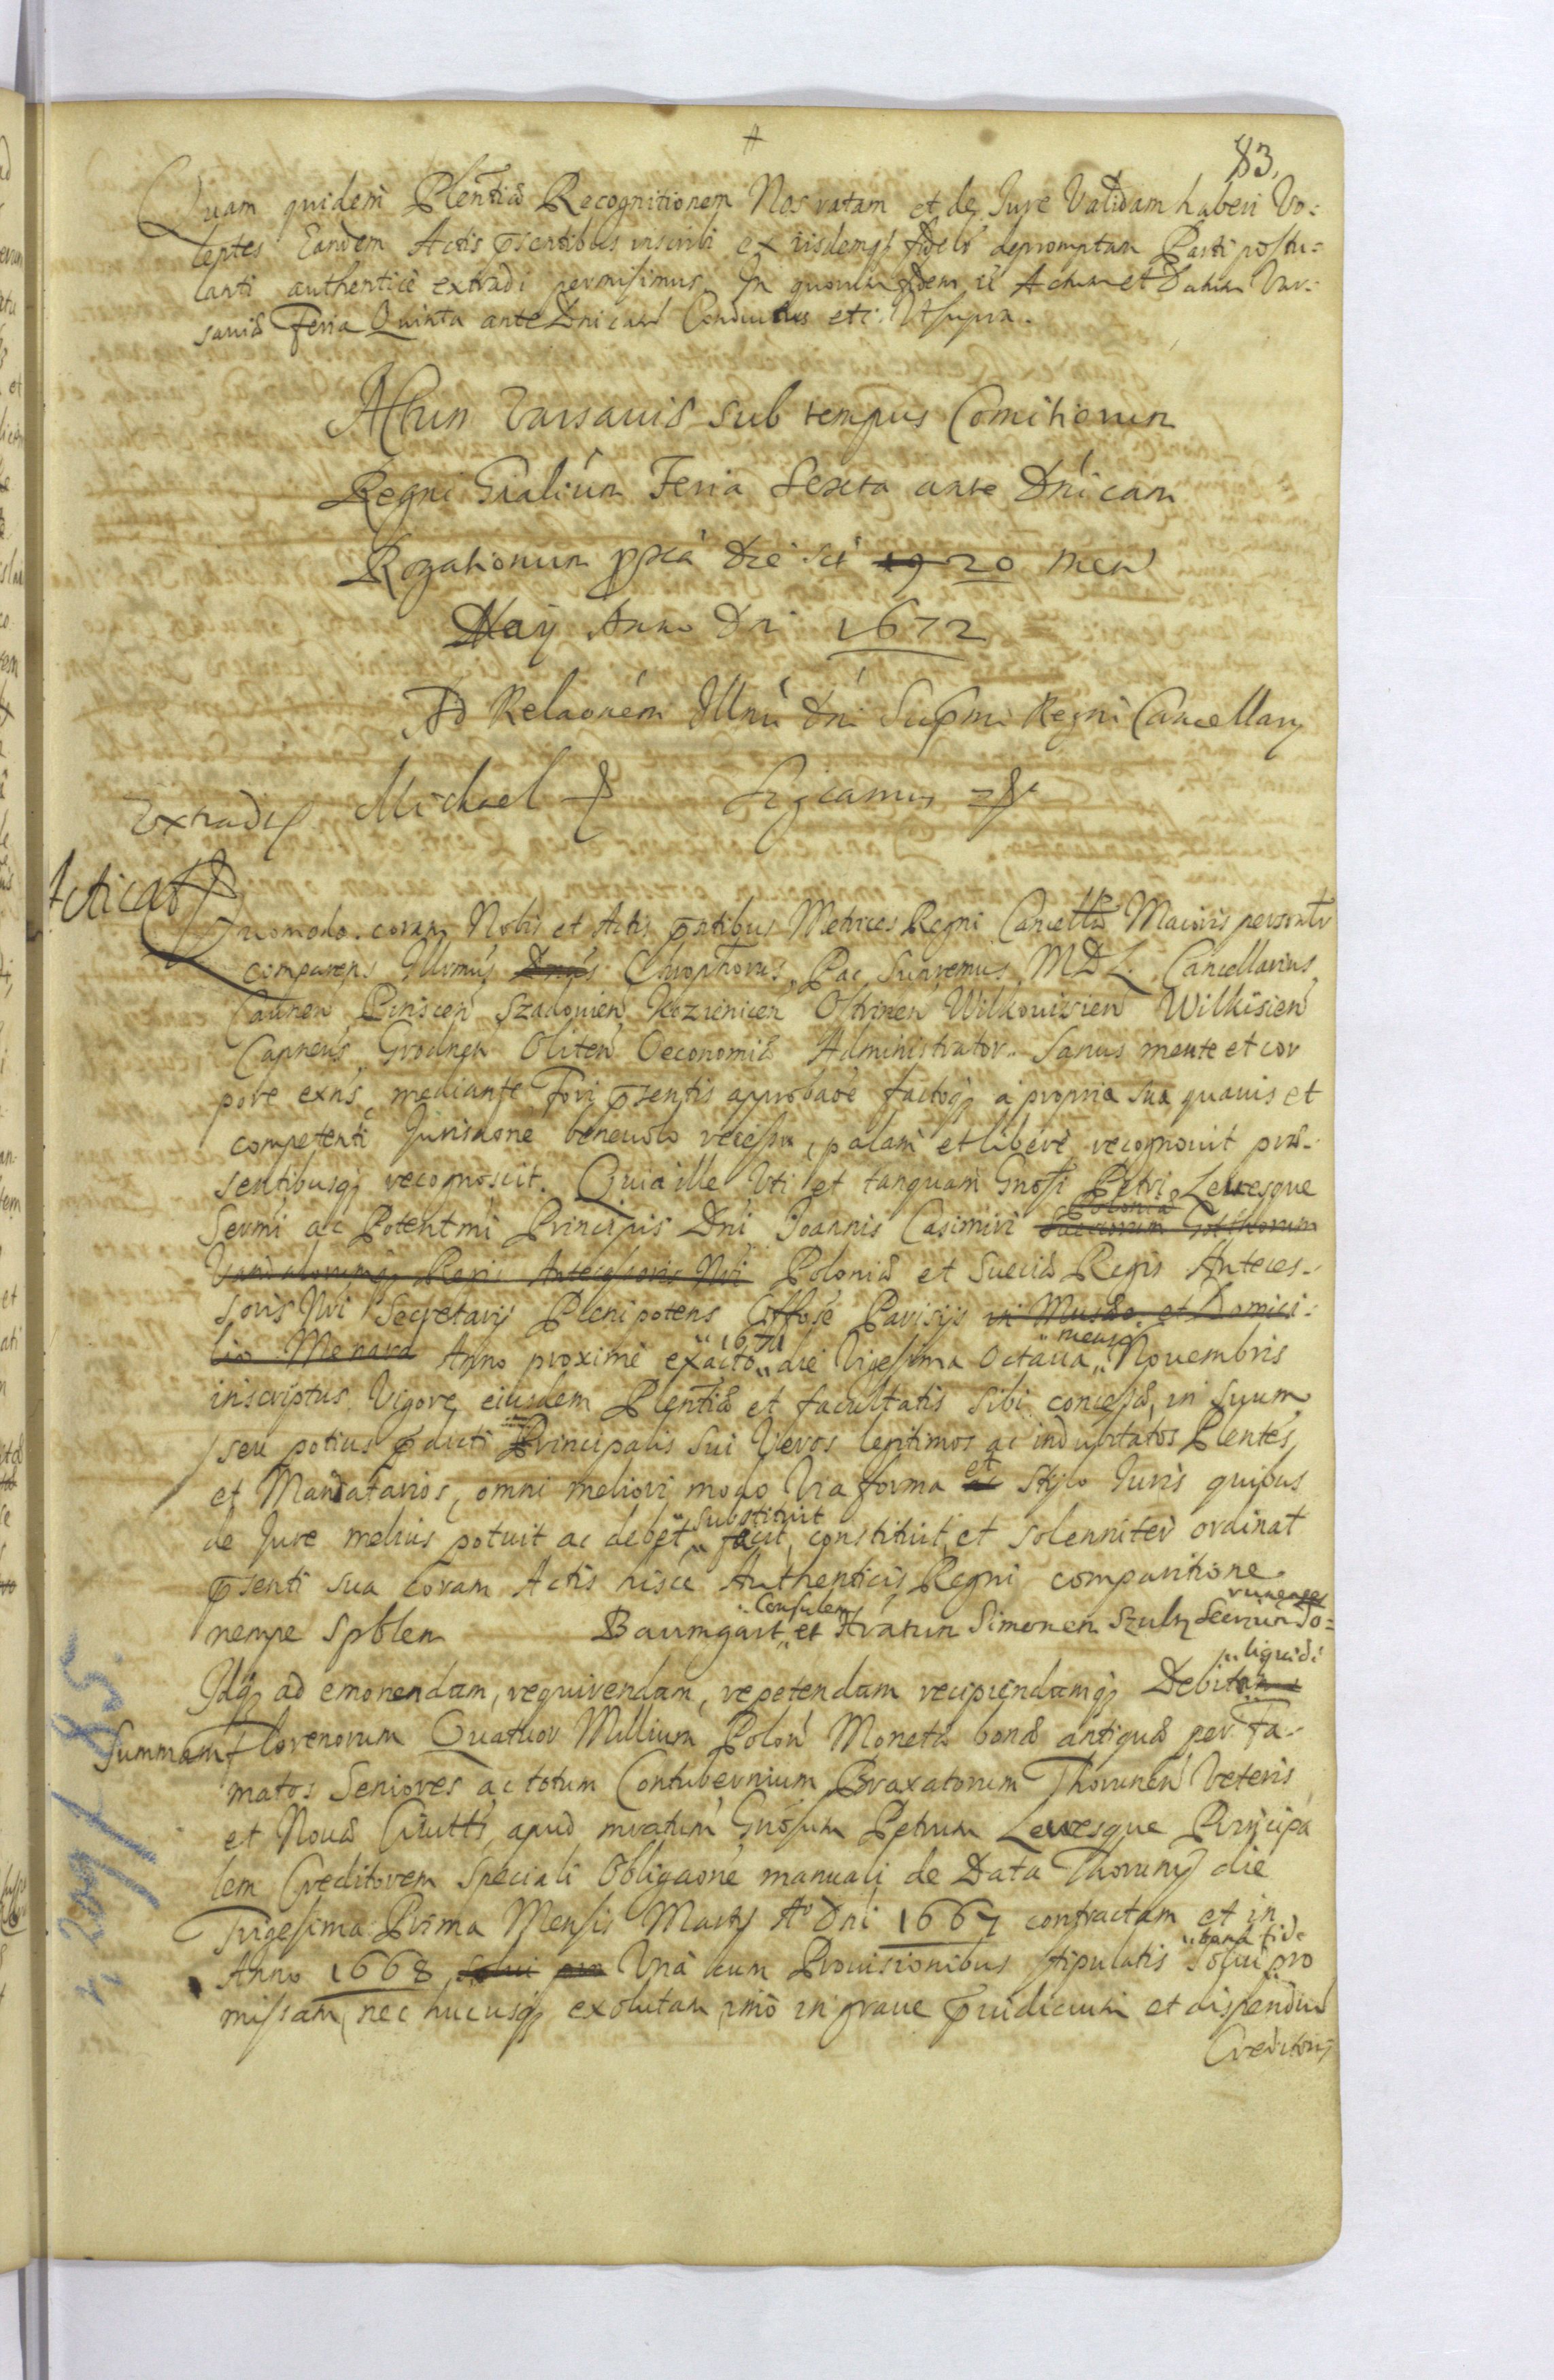 83.
Quam quidem Plentiæ Recognitionem Nos ratam et de Jure Validam haberi Vo-
lentes Eandem Actis pręsentibus inscribi ex iisdemq fideli depromptam Parti postu-
lanti authentice extradi permisimus. In quorum fidem etc Actum et Datum Var-
saviæ Feria Quinta ante Dnicam Conductus etc. Ut supra.
Actum Varsaviæ sub tempus Comitiorum
Regni Gnalium Feria Sexta ante Dnicam
Rogationum ppia die sci 19 20 men
Maij Anno Dni 1672
Ad Relaonem Illmi Dni Supmi Regni Cancellarij
Michael
Extradit
Acticat
Quomodo coram Nobis et Actis pntibus Metrices Regni Cancellæ Maioris personalr
comparens Illrmus Dnus Chrophorus Pac Supremus M D L Cancellarius
Caunen Pinscen Szadovien Kozienicen Ostrinen Wilkowiscien Wilkiscien
Capneus Grodnen Oliten Oeconomiæ Administrator. Sanus mente et cor
pore exns, mediante Fori pręsentis approbaoe factoq a propria sua quavis et
competenti Jurisdione benevolo recessu, palam et libere recognovit præ-
sentibusq recognoscit. Quia ille Uti et tanquam Gnosi Petri Levesque
Sermi ac Potentmi Principis Dni Joannis Casimiri Poloniæ Suecorum Gotthorum
Vandalorumq Regis Antecessoris Nri Poloniæ et Sueciæ Regis Anteces-
soris Nri Secretarij Plenipotens Offose Parisijs in Musæo et Domici-
lio Menard Anno proxime exacto 1671 die Vigesima Octava mensis Novembris
inscriptus. Vigore eiusdem Plentiæ et facultatis sibi concessæ, in suum
seu potius pducti Principalis sui Veros legitimos ac indubitatos Plentes,
et Mandatarios, omni meliori modo Via forma ac et stylo Juris quibus
de Jure melius potuit ac debet substituit facit, constituit et solenniter ordinat
pręsenti sua coram Actis hisce Authenticis Regni comparitione
nempe Spblem Baumgart Consulem et Hratum Simonem Szultz Secrium To-
runenses
Idq ad emonendam, requirendam, repetendam recipiendamq Debitam liquidi
Summam Florenorum Quatuor Millium Polon Monetæ bonæ antiquæ per Fa-
matos Seniores ac totum Contubernium Braxatorum Thorunen Veteris
et Novæ Civittis, apud mratum Gnosum Petrum Levesque Principa
lem Creditorem speciali Obligaone manuali de Data Thorunij die
Trigesima Prima Mensis Martij Ao Dni 1667 contractam et in
Anno 1668 solui pro Una cum Provisionibus stipulatis bona fide solui pro
missam, nec hucusq exolutam, imo in grave pręiudicium et dispendium
Creditoris